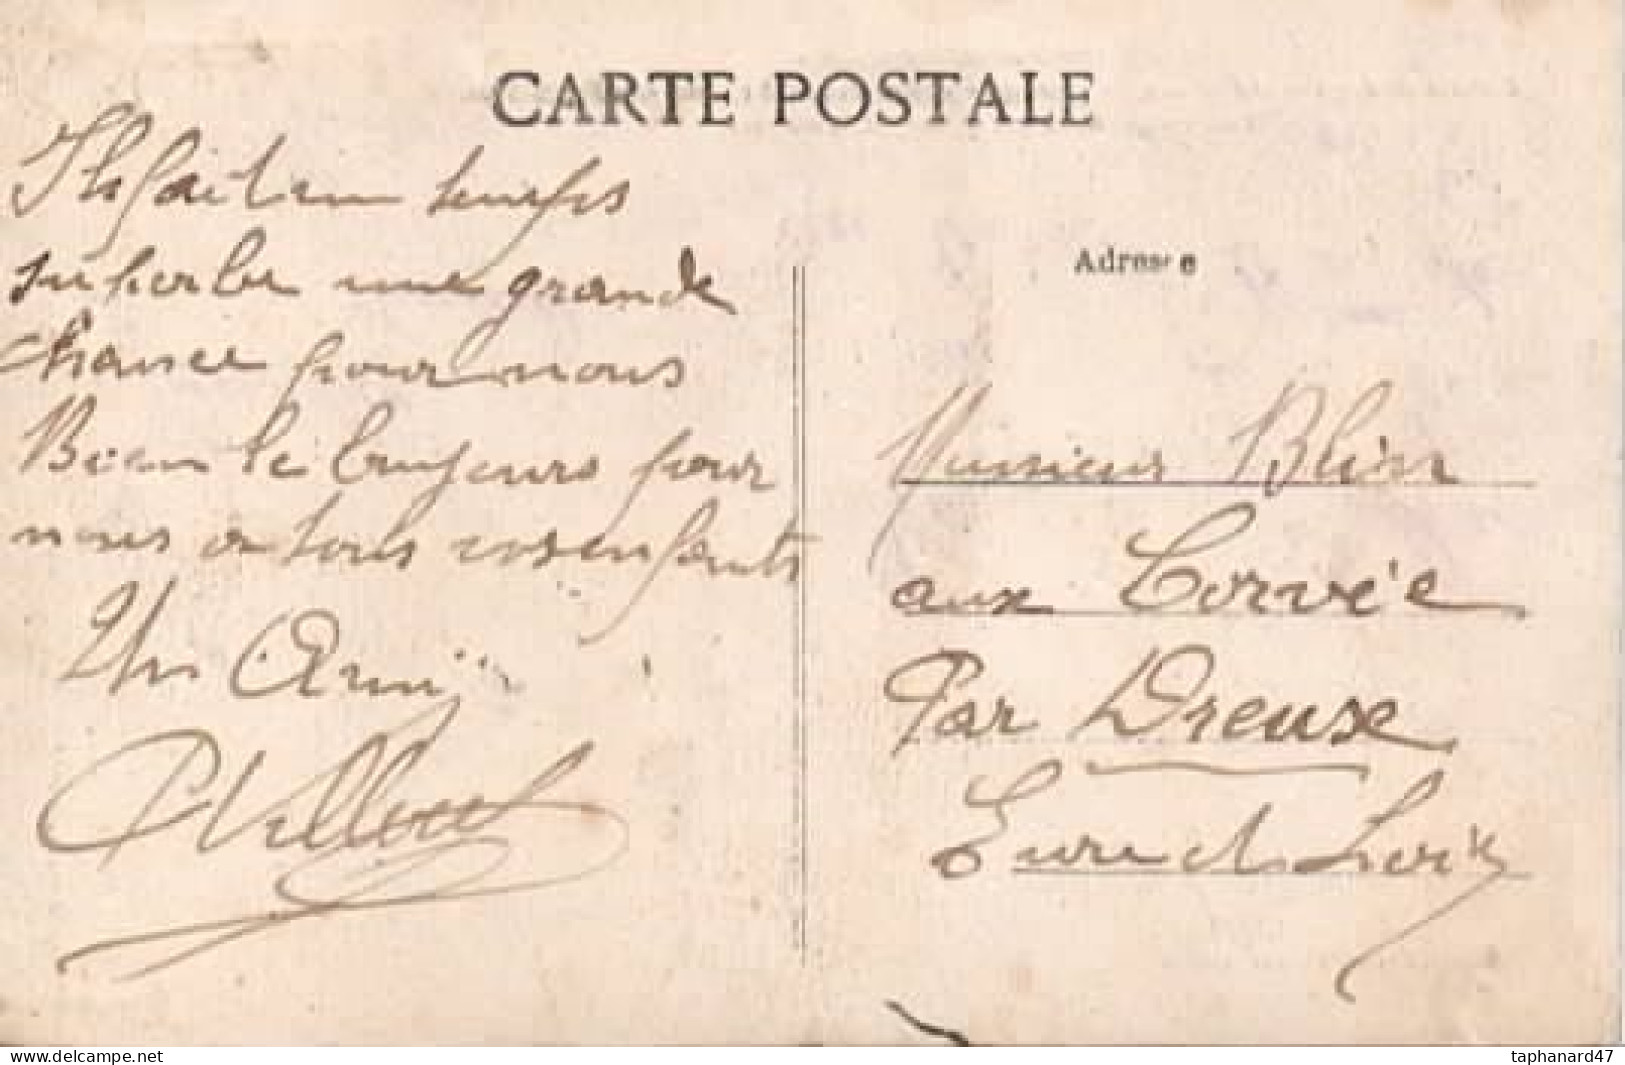 CARTE POSTALE
Il fait un temps
superbe une grande
chance pour nous
Bien le
pour
nous a tous vos enfants
Un Ami
Adresse
Monsieur Blin
aux Corvée
Par Dreuse
Eure et Loir
www.delcampe.net
taphanard47